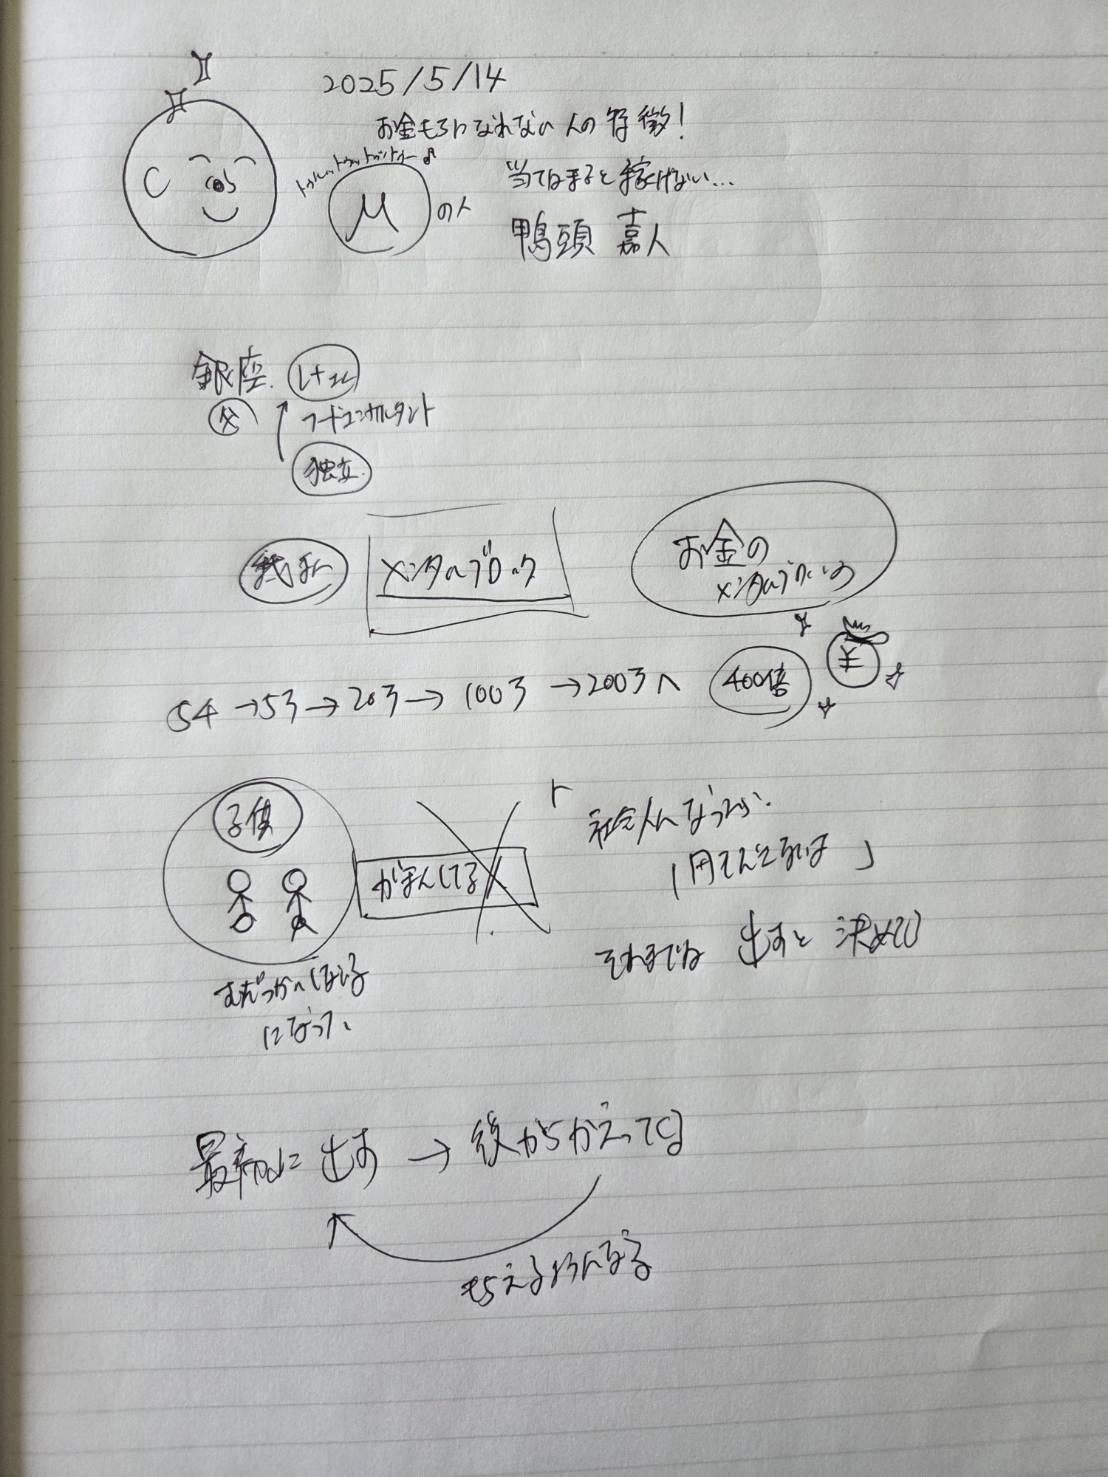 2025/5/14
お金もちになれない人の特徴!
当てはまると稼げない…
Mの人
鴨頭 嘉人
銀座
父
フードコンサルタント
独立
メンタルブロック
お金の
メンタルブロック
5千→5万→20万→100万→200万へ 400倍
¥
子供
がまんしてる
「社会人になったら、
1円でんでるは」
それまでは 出すと決めて
になって、
最初に出す → 後からかえってくる
もらえるようになる